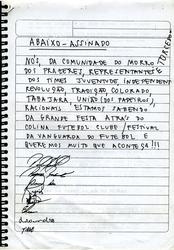 ABAIXO-ASSINADO
NÓS, DA COMUNIDADE DO MORRO
DOS PRAZERES, REPRESENTANTES
DOS TIMES JUVENTUDE, INDEPENDENTE
REVOLUÇÃO, TRADIÇÃO, COLORADO,
TABAJARA, UNIÃO (DOS PADEIROS),
RACIONAIS ESTAMOS SABENDO
DA GRANDE FESTA ATRÁS DO
COLINA FUTEBOL CLUBE / FESTIVAL
DA VANGUARDA DO FUTEBOL E
QUEREMOS MUITO QUE ACONTEÇA!!!